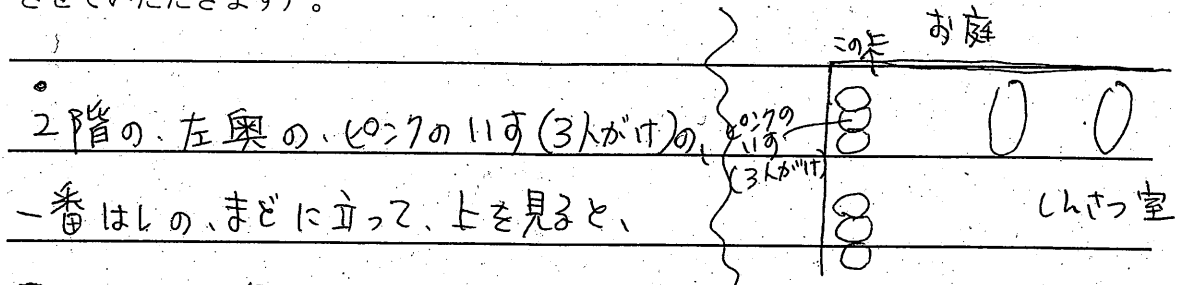 させていただきます）。
2階の、左奥の、ピンクのいす(3人がけ)の、
一番はしの、まどに立って、上を見ると、
お庭
この上
ピンクの
いす
(3人がけ)
しんさつ室